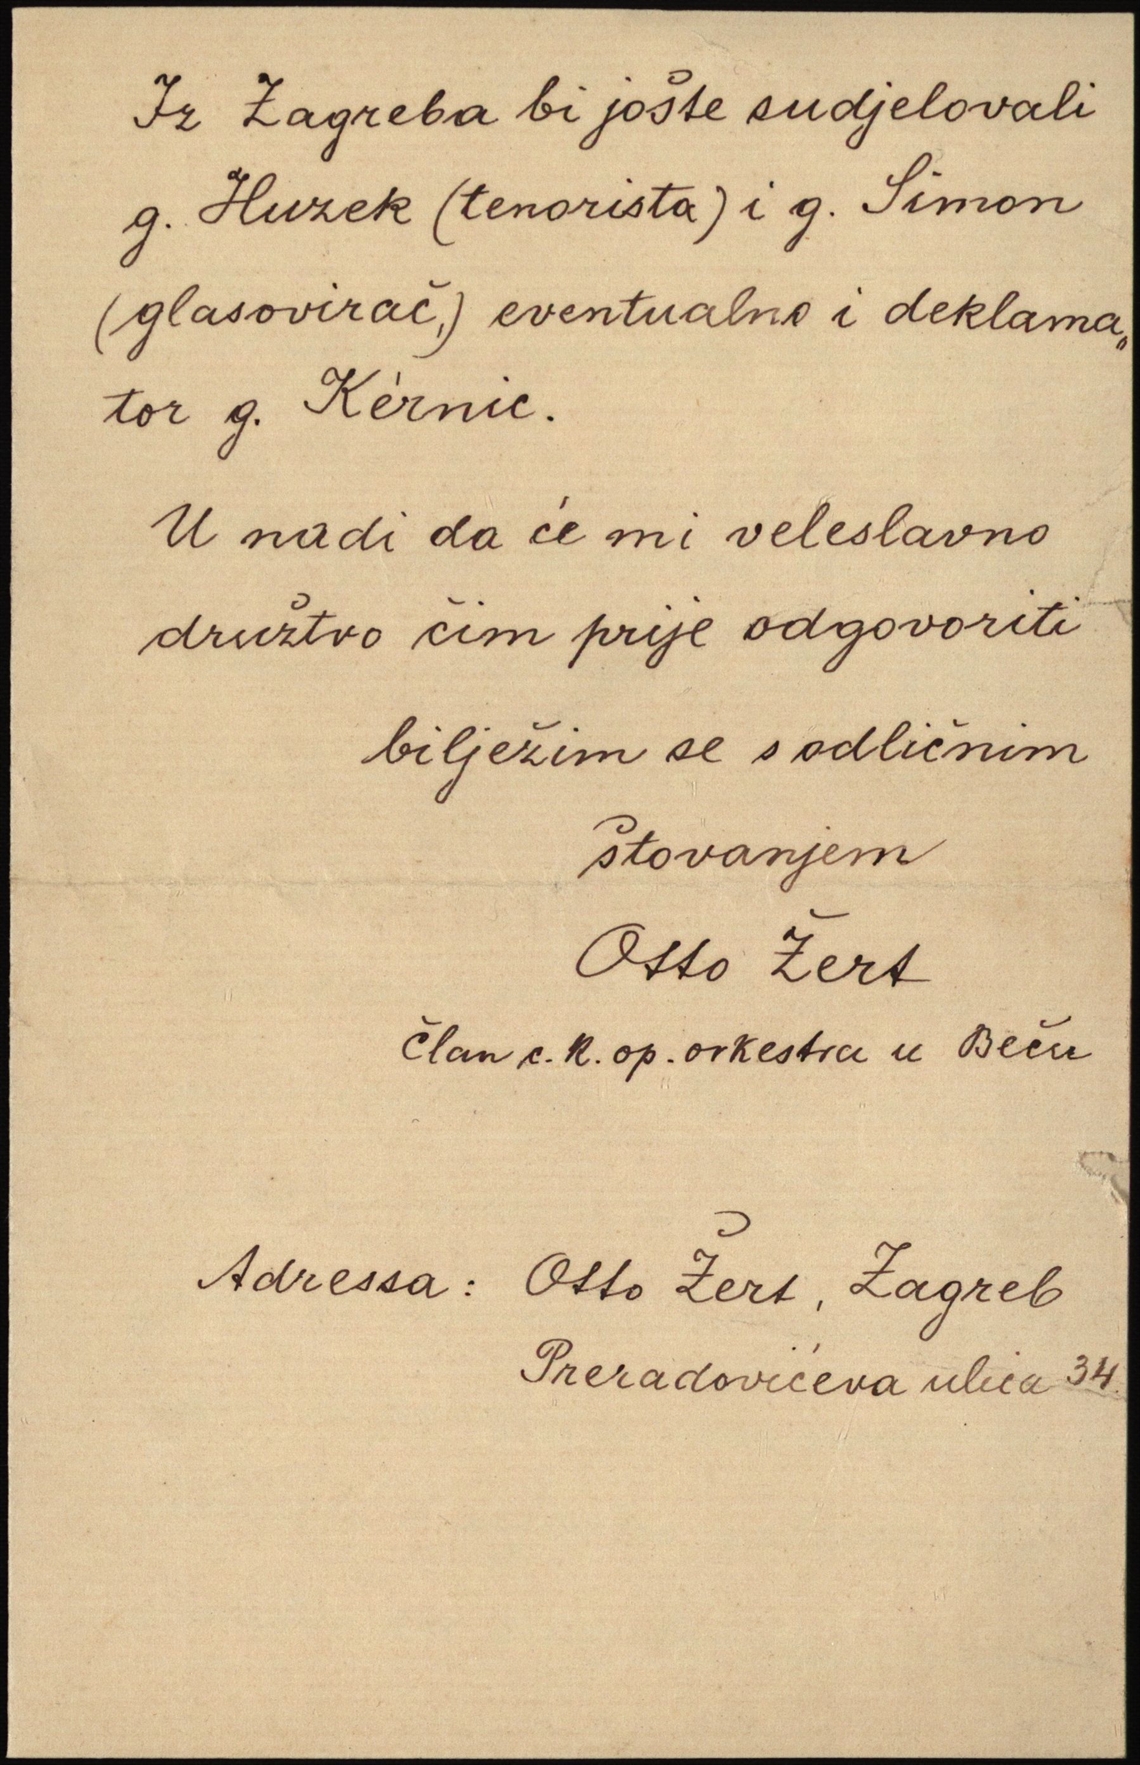 Iz Zagreba bi jošte sudjelovali
g. Huzek (tenorista) i g. Simon
(glasovirač,) eventualno i deklama„
tor g. Kérnic.
U nadi da će mi veleslavno
družtvo čim prije odgovoriti
bilježim se s odličnim
štovanjem
Otto Žert
član c. k. op. orkestra u Beču
Adressa: Otto Žert, Zagreb
Preradovićeva ulica 34.